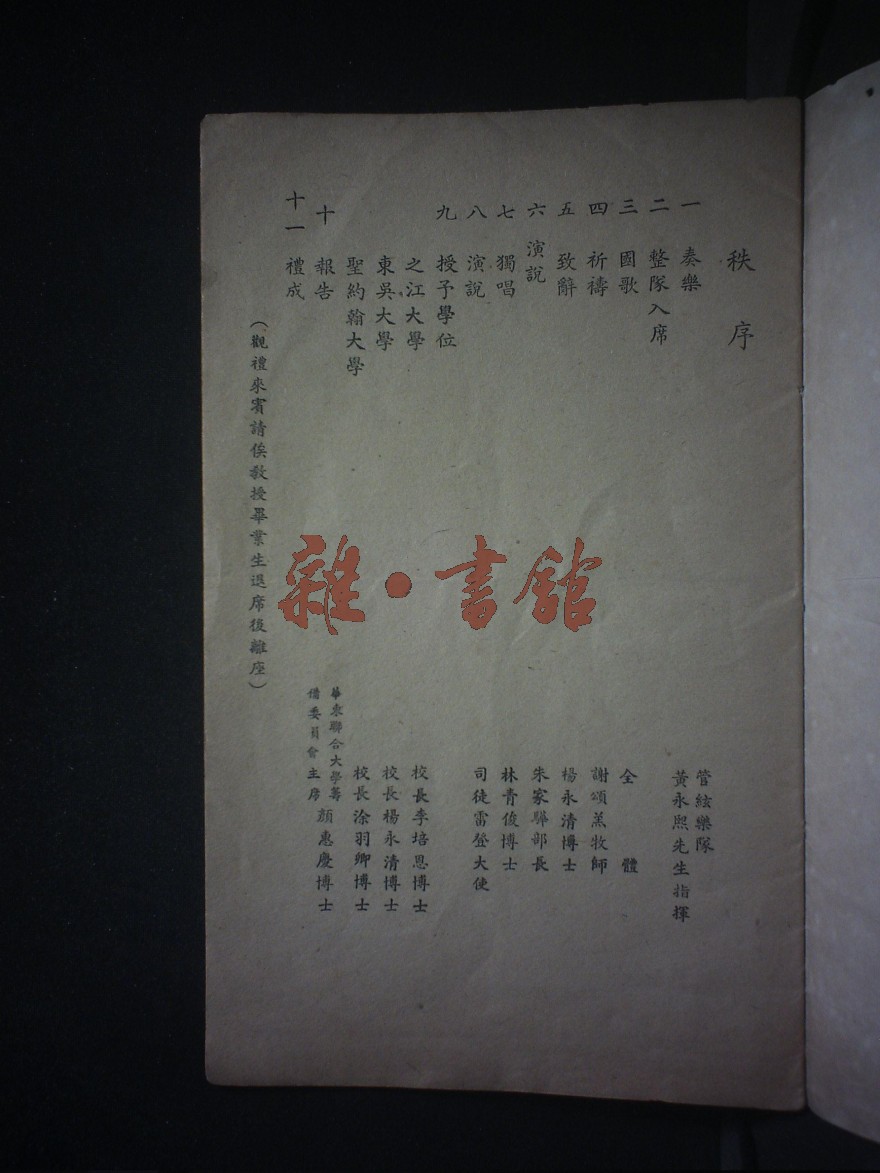 秩序
一 奏樂 管絃樂隊
黃永熙先生指揮
二 整隊入席
三 國歌 全體
四 祈禱 謝頌羔牧師
五 致辭 楊永清博士
六 演說 朱家驊部長
七 獨唱 林青俊博士
八 演說 司徒雷登大使
九 授予學位
之江大學 校長李培恩博士
東吳大學 校長楊永清博士
聖約翰大學 校長涂羽卿博士
十 報告 華東聯合大學籌備委員會主席 顏惠慶博士
十一 禮成
（觀禮來賓請俟教授畢業生退席後離座）
雜・書館